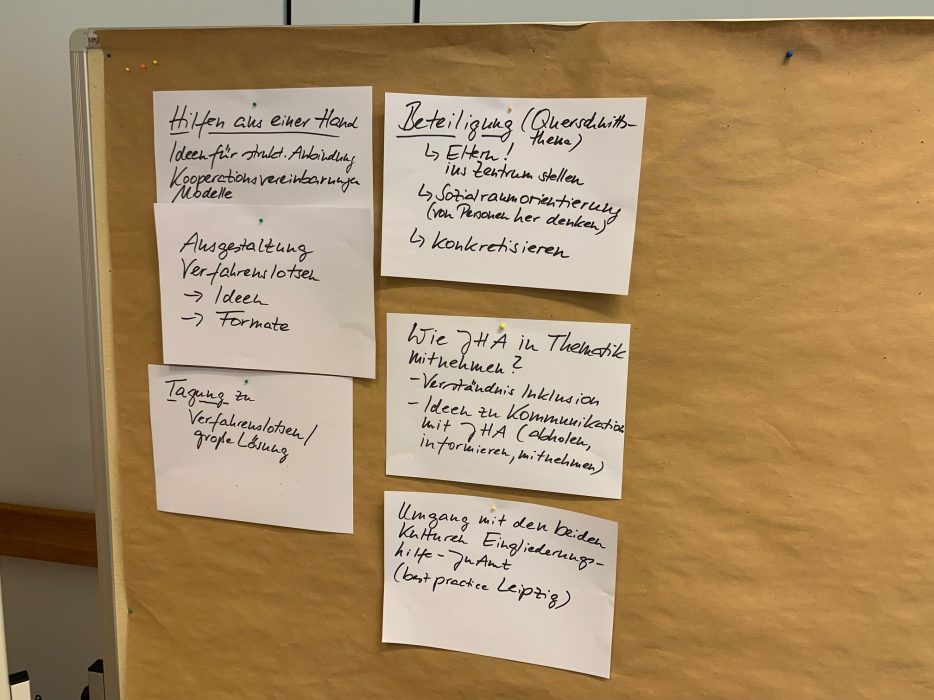 Hilfen aus einer Hand
Ideen für strukt. Anbindung
Kooperationsvereinbarungen
Modelle
Ausgestaltung
Verfahrenslotsen
→ Ideen
→ Formate
Tagung zu
Verfahrenslotsen/
große Lösung
Beteiligung (Querschnitts-
thema)
↳ Eltern!
ins Zentrum stellen
↳ Sozialraumorientierung
(von Personen her denken)
↳ Konkretisieren
Wie JHA in Thematik
mitnehmen?
- Verständnis Inklusion
- Ideen zu Kommunikation
mit JHA (abholen,
informieren, mitnehmen)
Umgang mit den beiden
Kulturen Eingliederungs-
hilfe - JuAmt
(best practice Leipzig)